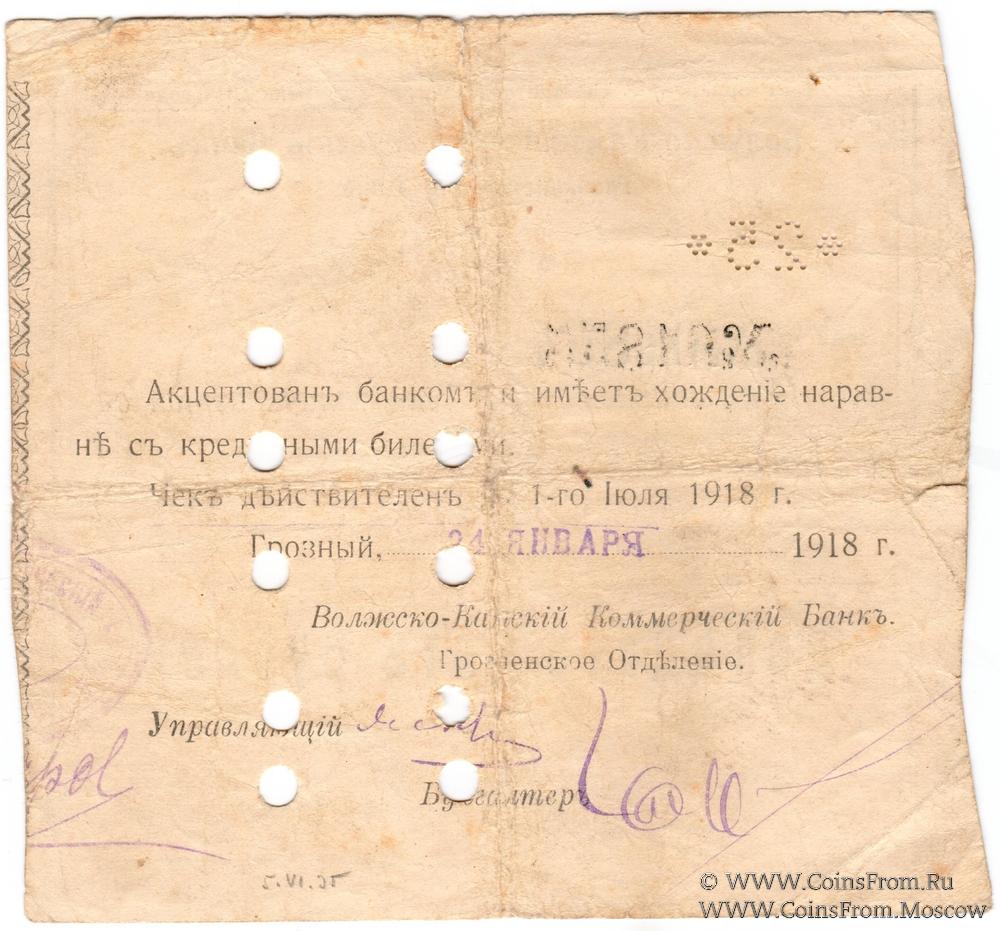 *25*
Акцептованъ банкомъ и имѣетъ хожденіе нарав-
нѣ съ кредными билеми.
Чекъ дѣйствителенъ 1-го Іюля 1918 г.
Грозный, 24 ЯНВАРЯ 1918 г.
Волжско-Камскій Коммерческій Банкъ.
Грозненское Отдѣленіе.
Управляющій
Бухгалтеръ
© WWW.CoinsFrom.Ru
WWW.CoinsFrom.Moscow